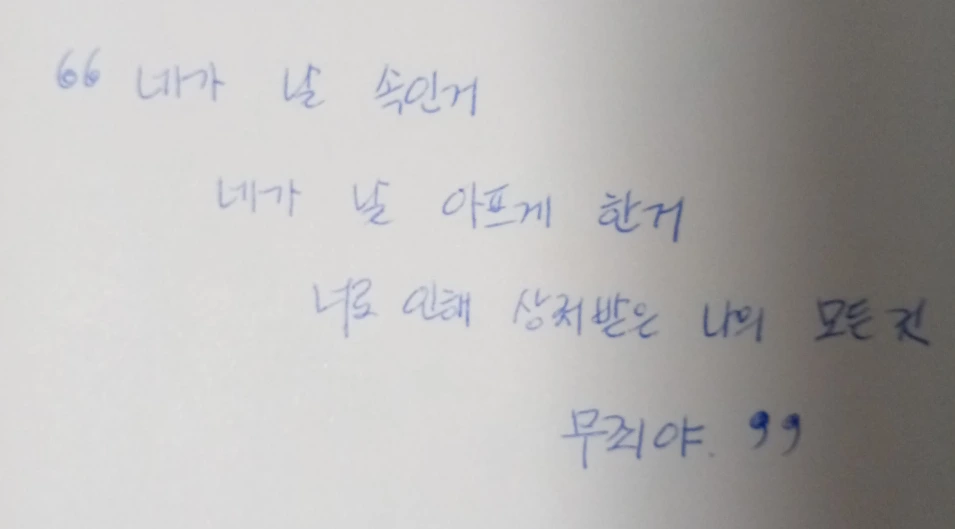 “ 네가 날 속인거
네가 날 아프게 한거
너로 인해 상처받은 나의 모든 것
무죄야. ”